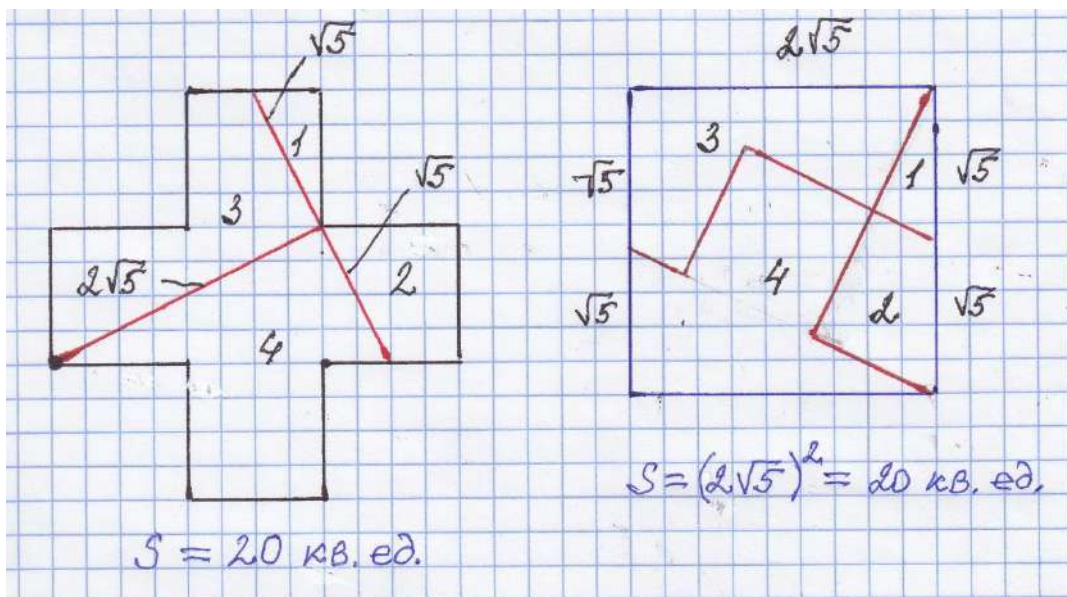 √5
1
√5
3
2√5
2
4
S = 20 кв. ед.
2√5
3
√5
1
√5
4
√5
2
√5
S = (2√5)² = 20 кв. ед.